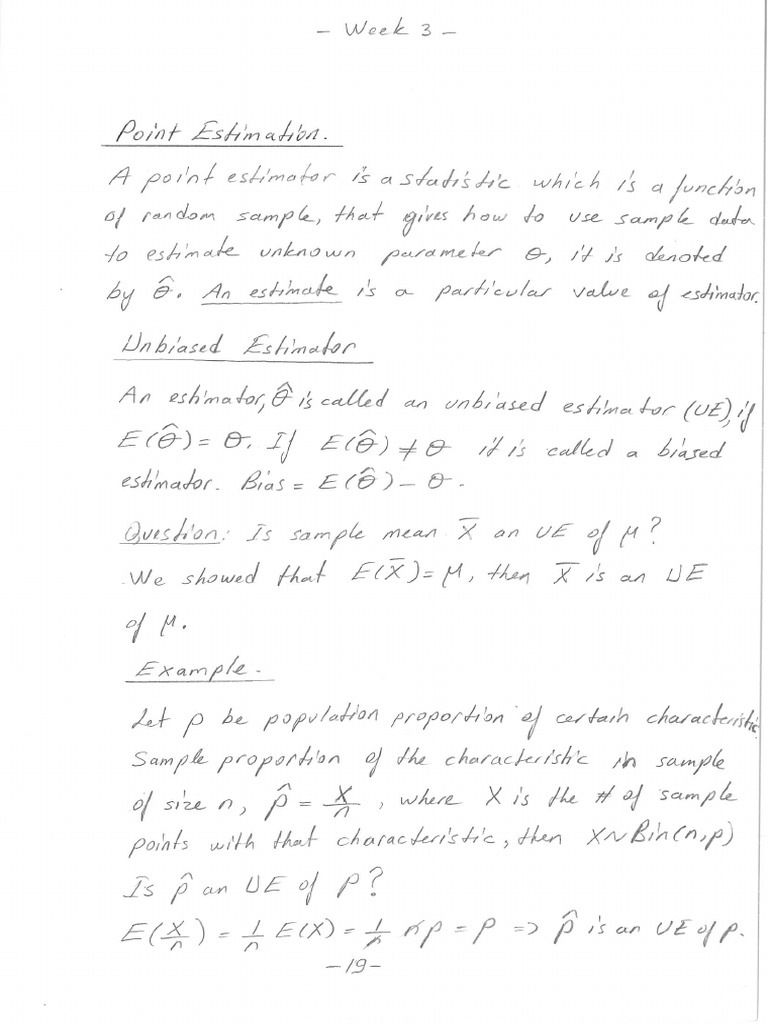 - Week 3 -
Point Estimation.
A point estimator is a statistic which is a function
of random sample, that gives how to use sample data
to estimate unknown parameter θ, it is denoted
by θ̂. An estimate is a particular value of estimator.
Unbiased Estimator
An estimator, θ̂ is called an unbiased estimator (UE), if
E(θ̂) = θ. If E(θ̂) ≠ θ it is called a biased
estimator. Bias = E(θ̂) - θ.
Question: Is sample mean X̄ an UE of μ?
We showed that E(X̄) = μ, then X̄ is an UE
of μ.
Example.
Let p be population proportion of certain characteristic.
Sample proportion of the characteristic in sample
of size n, p̂ = X/n, where X is the # of sample
points with that characteristic, then X~Bin(n,p)
Is p̂ an UE of p?
E(X/n) = 1/n E(X) = 1/n np = p => p̂ is an UE of p.
-19-